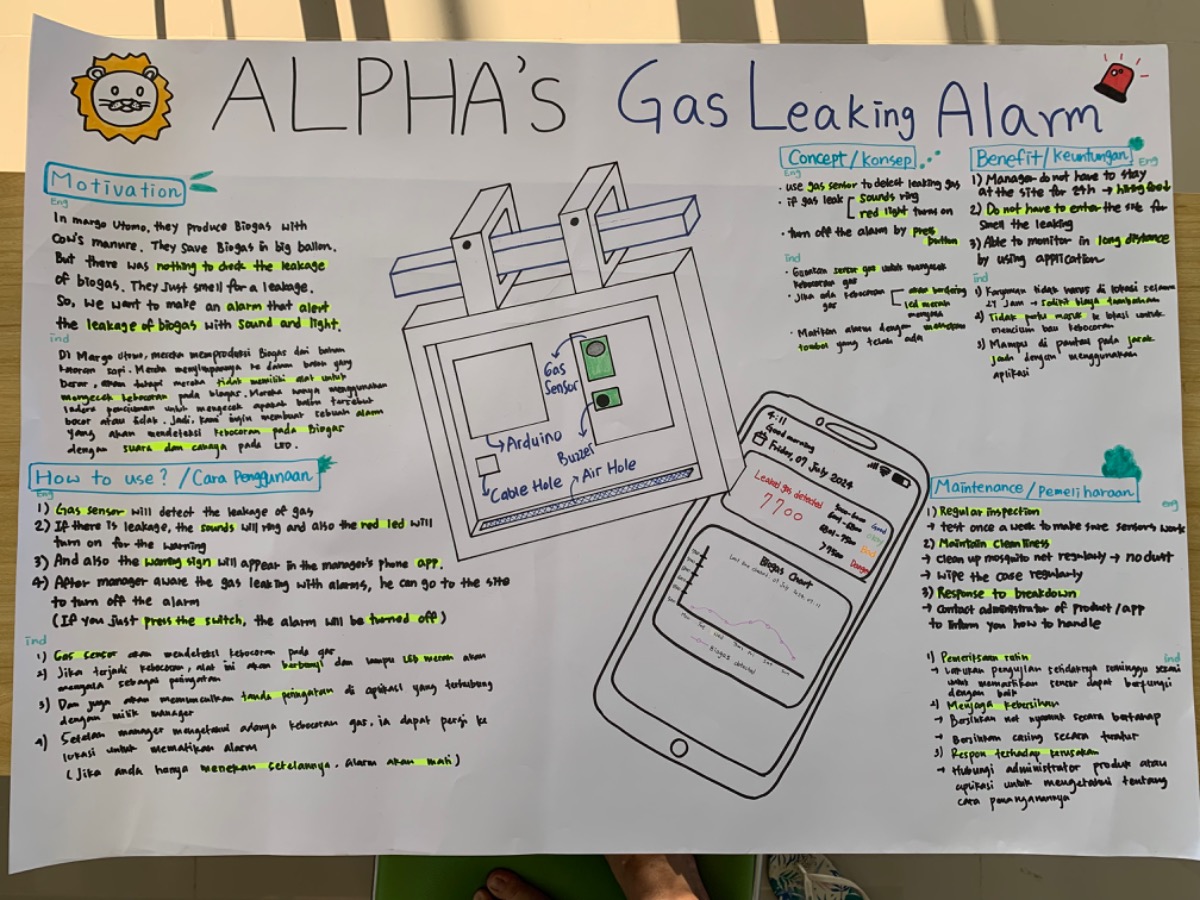 ALPHA's Gas Leaking Alarm
Motivation
Eng
In margo Utomo, they produce Biogas with
cow's manure. They save Biogas in big ballon.
But there was nothing to check the leakage
of biogas. They just smell for a leakage.
So, we want to make an alarm that alert
the leakage of biogas with sound and light.
ind
Di Margo Utomo, mereka memproduksi Biogas dari bahan
kotoran sapi. Mereka menyimpannya ke dalam balon yang
besar, akan tetapi mereka tidak memiliki alat untuk
mengecek kebocoran pada biogas. Mereka hanya menggunakan
indera penciuman untuk mengecek apakah balon tersebut
bocor atau tidak. Jadi, kami ingin membuat sebuah alarm
yang akan mendeteksi kebocoran pada Biogas
dengan suara dan cahaya pada LED.
How to use? / Cara Penggunaan
Eng
1) Gas sensor will detect the leakage of gas
2) If there is leakage, the sounds will ring and also the red led will
turn on for the warning
3) And also the warning sign will appear in the manager's phone app.
4) After manager aware the gas leaking with alarms, he can go to the site
to turn off the alarm
(If you just press the switch, the alarm will be turned off)
ind
1) Gas sensor akan mendeteksi kebocoran pada gas
2) Jika terjadi kebocoran, alat ini akan berbunyi dan lampu LED merah akan
menyala sebagai peringatan
3) Dan juga akan memunculkan tanda peringatan di aplikasi yang terhubung
dengan milik manager
4) Setelah manager mengetahui adanya kebocoran gas, ia dapat pergi ke
lokasi untuk mematikan alarm
(Jika anda hanya menekan setelannya, alarm akan mati)
Gas
Sensor
Arduino
Buzzer
Cable Hole
Air Hole
4:11
Good morning
Friday, 07 July 2024
Leaked gas detected
7700
Good
okay
Bad
Danger
Biogas Chart
Biogas detected
Concept / Konsep
Eng
• use gas sensor to detect leaking gas
• if gas leak [ sounds ring
red light turns on
• turn off the alarm by press
button
ind
• Gunakan sensor gas untuk mengecek
kebocoran gas
• Jika ada kebocoran [ akan berdering
gas led merah
menyala
• Matikan alarm dengan menekan
tombol yang telah ada
Benefit / Keuntungan
Eng
1) Manager do not have to stay
at the site for 24h → hiring
2) Do not have to enter the site for
smell the leaking
3) Able to monitor in long distance
by using application
ind
1) Karyawan tidak harus di lokasi selama
24 Jam →
2) Tidak perlu masuk ke lokasi untuk
mencium bau kebocoran
3) Mampu di pantau pada jarak
jauh dengan menggunakan
aplikasi
Maintenance / Pemeliharaan
eng
1) Regular inspection
→ test once a week to make sure sensors work
2) Maintain cleanliness
→ clean up mosquito net regularly → no dust
→ wipe the case regularly
3) Response to breakdown
→ contact administrator of product / app
to inform you how to handle
ind
1) Pemeriksaan rutin
→ Lakukan pengujian setidaknya seminggu sekali
untuk memastikan sensor dapat berfungsi
dengan baik
2) Menjaga kebersihan
→ Bersihkan net nyamuk secara bertahap
→ Bersihkan casing secara teratur
3) Respon terhadap kerusakan
→ Hubungi administrator produk atau
aplikasi untuk mengetahui tentang
cara penanganannya